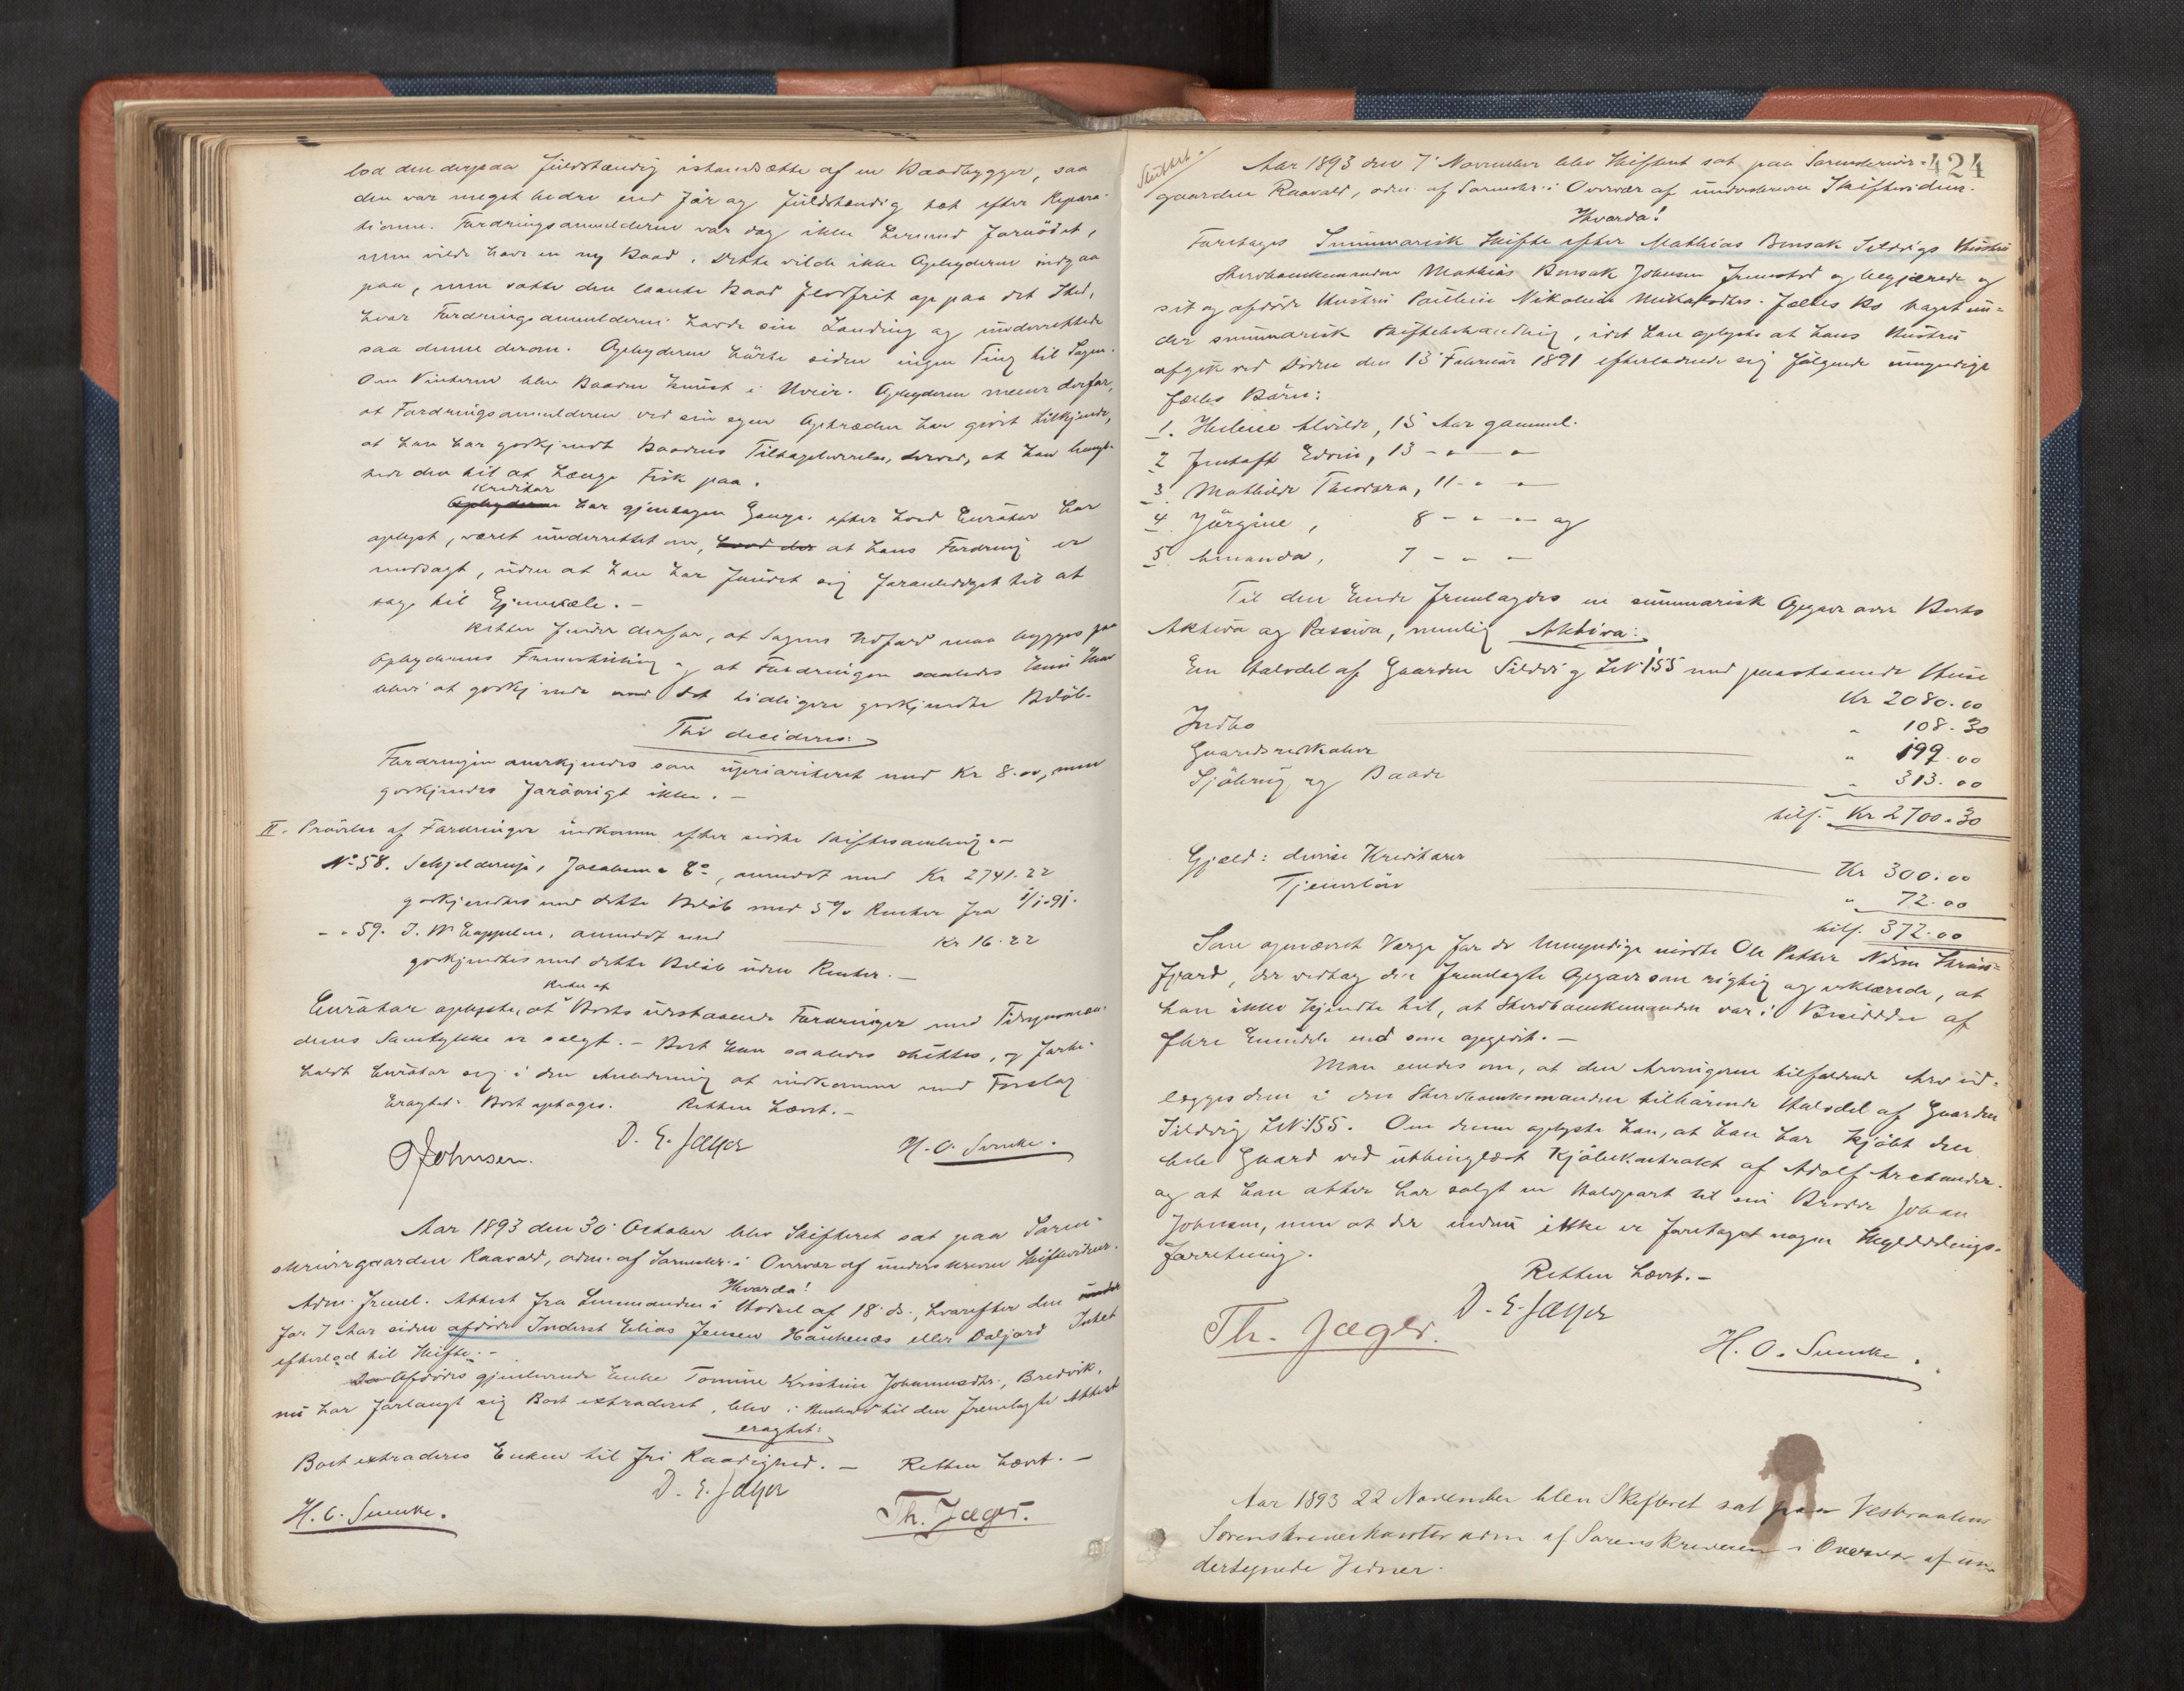 lod den derpaa fuldstændig istandsætte af en Baadbygger, saa
den var meget bedre end før og fuldstændig tæt efter Repara-
tionen. Fordringsanmelderen var dog ikke hermed fornöiet,
men vilde have en ny Baad. Dette vilde ikke Opbyderen indgaa
paa, men satte den laante Baad flodfrit op paa det Sted,
hvor Fordringsanmelderen havde sin Landing og underrettede
saa denne derom. Opbyderen hörte siden ingen Ting til Sagen.
Om Vinteren blev Baaden knust i Uveir. Opbyderen mener derfor,
at Fordringsanmelderen ved sin egen Optræden har givet tilkjende,
at han har godkjendt Baadens Tilbageleverelse, derved, at han benyt-
tede den til at hænge Fisk paa.
Kreditor
Opbyderen har gjentagne Gange efter hvad Curator har
oplyst, været underrettet om, hvad der at hans Fordring er
modsagt, uden at han har fundet sig foranlediget til at
tage til Gjenmæle. —
Retten finder derfor, at Sagens Udfald maa bygges paa
Opbyderens Fremstilling og at Fordringen saaledes kun kan
blive at godkjende med det tidligere godkjendte Belöb.
Thi decideres:
Fordringen anerkjendes som uprioriteret med Kr 8.00, men
godkjendes forövrigt ikke. —
II. Prövelse af Fordringer indkomne efter sidste Skiftesamling. —
No 58. Schjelderup, Jacobsen & Co, anmeldt med Kr 2741.22
godkjendtes med dette Belöb med 5% Renter fra 1/1.91.
" " 59. J. W. Cappelen, anmeldt med Kr 16.22
godkjendtes med dette Belöb uden Renter. —
Resten af
Curator oplyste, at Boets udestaaende Fordringer med Tilsynsmæn-
denes Samtykke er solgt. — Boet kan saaledes sluttes, og forbe-
holdt Curator sig i den Anledning at indkomme med Forslag
Eragtet: Boet optages. Retten hævet. —
O Johnsen. D. E. Jæger H. O. Suncke.
Aar 1893 den 30' October blev Skifteret sat paa Soren-
skrivergaarden Raavald, adm. af Sorenskr. i Overvær af underskrevne Skiftevidner.
Hvorda!
Adm. freml. Attest fra Lensmanden i Hadsel af 18' ds., hvorefter den
for 7 Aar siden afdöde Inderst Elias Jensen Haukenæs eller Daljord Intet
efterlod til Skifte. —
Afdödes gjenlevende Enke Tomine Kristine Johannesdtr., Bredvik,
nu har forlangt sig Boet extraderet, blev i Henhold til den fremlagte Attest
eragtet:
Boet extraderes Enken til fri Raadighed. — Retten hævet. —
D. E. Jæger
H. O. Suncke. Th. Jæger.
Sluttet.
424
Aar 1893 den 7' November blev Skifteret sat paa Sorenskriver-
gaarden Raavald, adm. af Sorenskr. i Overvær af underskrevne Skiftevidner.
Hvorda!
Foretoges Summarisk Skifte efter Mathias Bensak Sildvigs Hustru
Sterbboenkemanden Mathias Bensak Johnsen fremstod og begjærede
sit og afdöde Hustru Pauline Nikoline Mikalsdtrs. fælles Bo taget un-
der summarisk Skiftebehandling, idet han oplyste at hans Hustru
afgik ved Döden den 13' Februar 1891 efterladende sig fölgende umyndige
fælles Börn:
1. Helene Alvilde, 15 Aar gammel.
2 Jentoft Edvin, 13 - " - "
3. Mathilde Theodora, 11 - " - "
4 Jörgine, 8 - " - " og
5 Amanda, 7 - " - "
Til den Ende fremlagdes en summarisk Opgave over Boets
Aktiva og Passiva, nemlig Aktiva:
En Halvdel af Gaarden Sildvig LN 155 med paastaaende Huse
Kr 2080.00
Indbo " 108.30
Gaardsredskaber " 199.00
Sjöbrug og Baade " 313.00
tils. Kr 2700.30
Gjæld: diverse Kreditorer Kr 300.00
Tjenerlön " 72.00
tils. 372.00
Som opnævnt Værge for de Umyndige mödte Ole Petter Nilsen
fjord, der vedtog den fremlagte Opgave som rigtig og erklærede, at
han ikke kjendte til, at Sterbboenkemanden var i Besiddelse af
flere Eiendele end som opgivet. —
Man enedes om, at den Arvingerne tilfaldende Arv ud-
lægges dem i den Sterbboenkemanden tilhörende Halvdel af Gaarden
Sildvig LN 155. Om denne oplyste han, at han har kjöbt den
hele Gaard ved uthinglæst Kjöbekontrakt af Adolf Archander.
og at han atter har solgt en Halvpart til sin Broder Johan
Johnsen, men at der endnu ikke er foretaget nogen Skylddelings-
forretning.
Retten hævet. —
D. E. Jæger
Th. Jæger. H. O. Suncke.
Aar 1893 22 November blev Skifteret sat paa Vesteraalens
Sorenskriverkontor adm af Sorenskriveren i Overvær af un-
dertegnede Vidner.